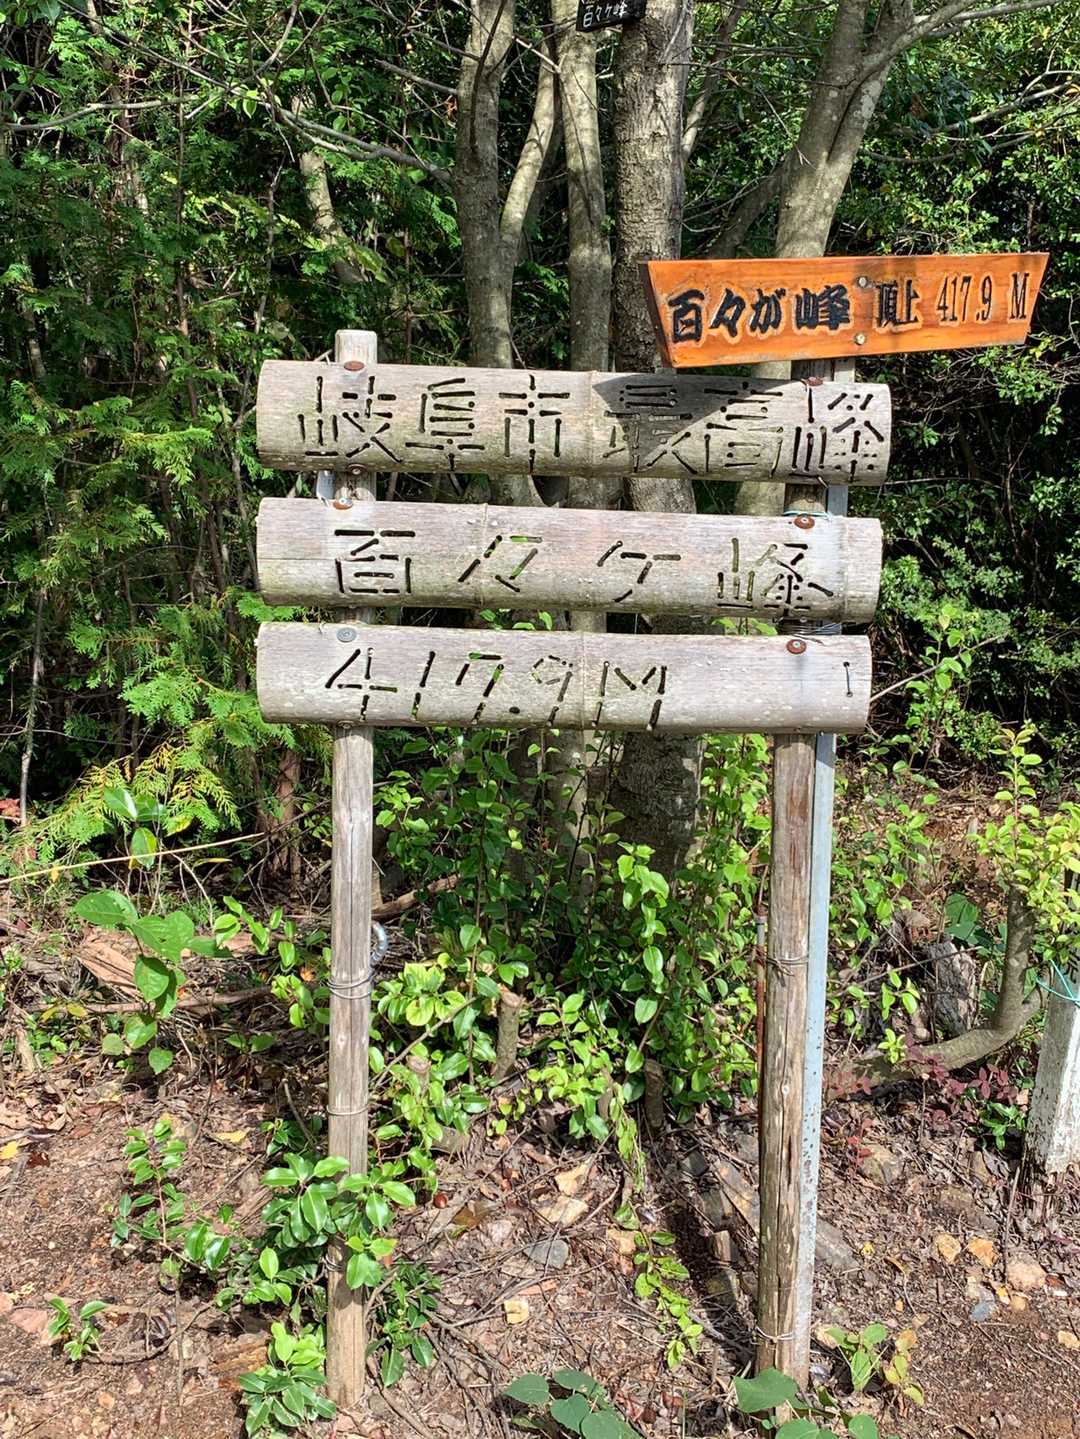 百々ケ峰
百々が峰 頂上 417.9 M
岐阜市最高峰
百々ケ峰
417.9M